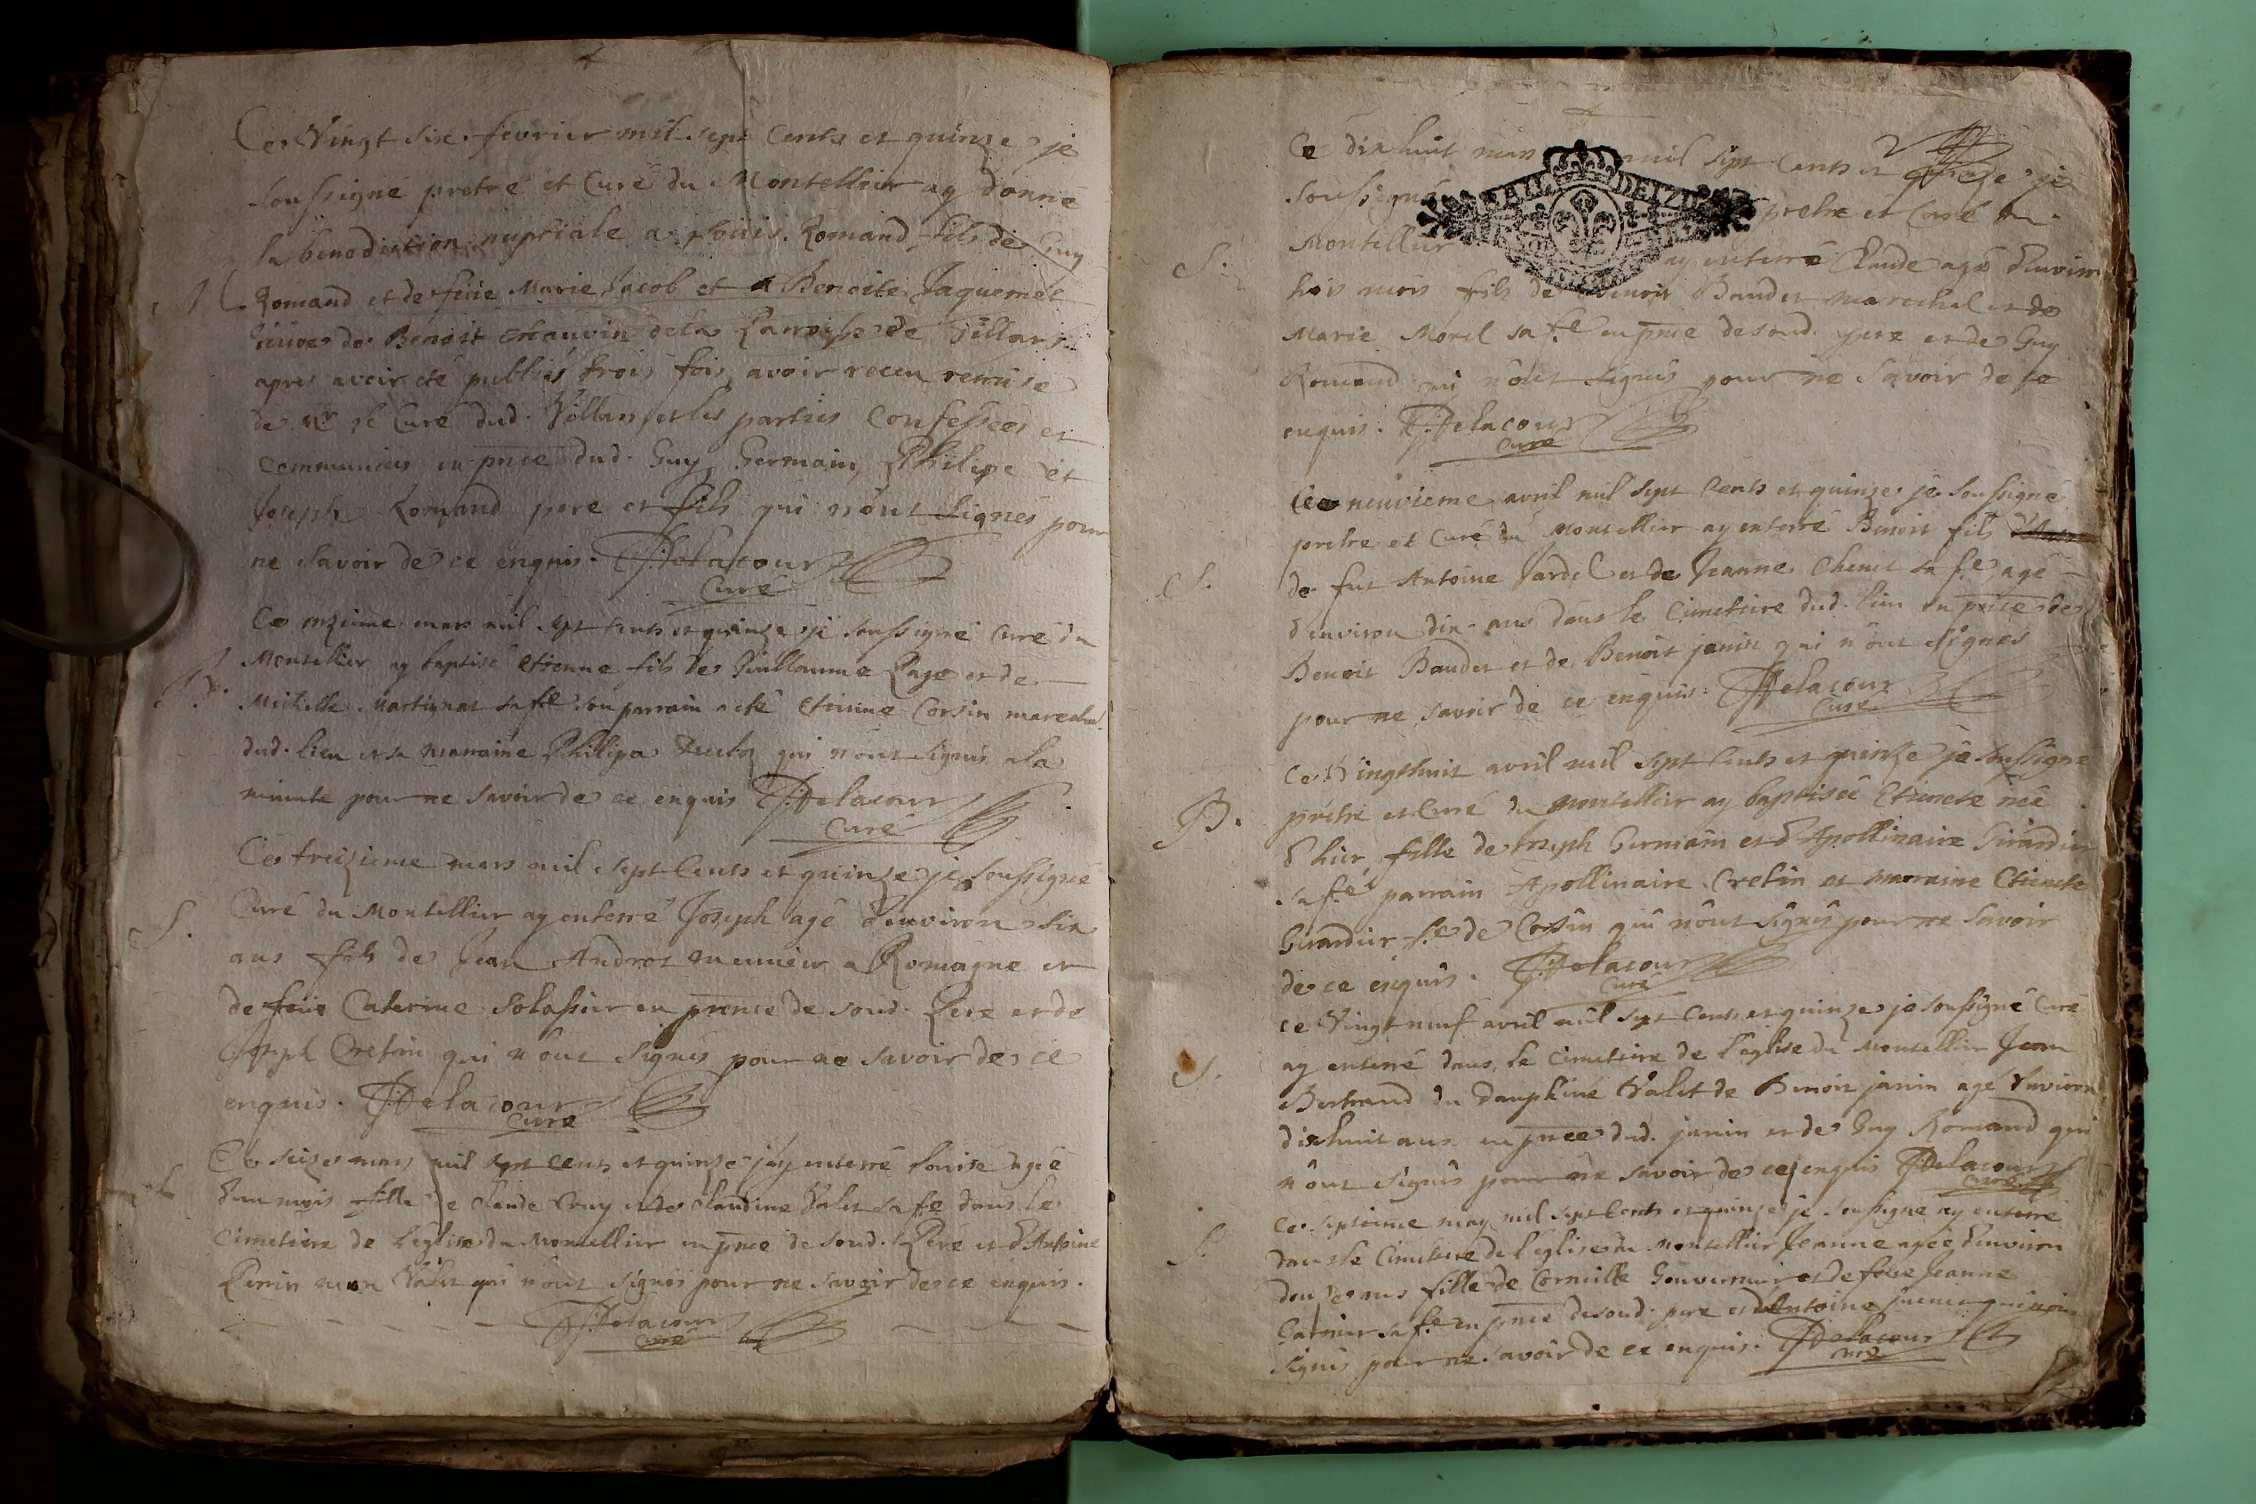 Ce Vingt six fevrier mil sept Cents et quinze je
soussigné pretre et Curé du Montellier ay donné
la benediction nuptiale a Loüis Romand fils de Guy
Romand et de feüe Marie Jacob et a Benoite Jaquemet
veuve de Benoit Chauvin de la Parroisse de Villars
apres avoir eté publiés trois fois avoir receu remise
de Mr le Curé dud. Villars et les parties Confessees et
Communiees en pnce dud. Guy, Germain, Philipe et
Joseph Romand pere et fils qui n'ont signés pour
ne savoir de ce enquis. Delacour
Curé
Ce onzieme mars mil sept Cents et quinze je soussigné Curé du
B.
Montellier ay baptisé Etienne fils de Guillaume Page et de
Michelle Martignat sa fe son parrain a eté Etienne Corsin marechal
dud. lieu et sa marraine Philipa qui n'ont signés la
minute pour ne savoir de ce enquis Delacour
Curé
Ce treizieme mars mil sept Cents et quinze je soussigné
S.
Curé du Montellier ay enterré Joseph agé d'environ six
ans fils de Jean Androt meunier a Romagne et
de feüe Caterine Solassier en pnence de soud. Pere et de
Joseph Cretin qui n'ont signés pour ne savoir de ce
enquis. Delacour
Curé
Ce seize mars mil sept cents et quinze j'ay enterré Louise agée
S.
d'un mois fille de Claude Cruy et de Claudine Valet sa fe dans le
Cimetiere de l'eglise du Montellier en pnce de soud. Pere et d'Antoine
Perrin mon Valet qui n'ont signés pour ne savoir de ce enquis.
Delacour
curé
Ce dix huit mars mil sept Cents et quinze je
soussigné pretre et Curé du
S.
Montellier ay enterré Claude agé d'environ
trois mois fils de Benoit Baudet marechal et de
Marie Morel sa fe en pnce de soud. pere et de Guy
Romand qui n'ont signés pour ne savoir de ce
enquis. Delacour
Curé
Ce neuvieme avril mil sept Cents et quinze je soussigné
pretre et Curé du Montellier ay enterré Benoit fils
S.
de fut Antoine Jardel et de Jeanne Chenet sa fe agé
d'environ dix ans dans le Cimetiere dud. lieu en pnce de
Benoit Baudet et de Benoit janin qui n'ont signés
pour ne savoir de ce enquis. Delacour
Curé
Ce Vingthuit avril mil sept Cents et quinze je soussigné
B.
pretre et Curé du Montellier ay baptisée Etienete née
d'hier fille de Joseph Germain et d'Apollinaire Girardier
sa fe parrain Apollinaire Cretin et marraine Etienete
Girardier fe de Corsin qui n'ont signés pour ne savoir
de ce enquis. Delacour
Curé
ce Vingt neuf avril mil sept Cents et quinze je soussigné Curé
S.
ay enterré dans le Cimetiere de l'eglise du Montellier Jean
Bertrand du dauphiné Valet de Benoit janin agé d'environ
dixhuit ans en pnce dud. janin et de Guy Romand qui
n'ont signés pour ne savoir de ce enquis Delacour
Curé
Ce septieme may mil sept Cents et quinze je soussigné ay enterré
S.
dans le Cimetiere de l'eglise du Montellier Jeanne agée d'environ
douze ans fille de Corneille Gouverneur et de feüe Jeanne
Garnier sa fe en pnce de soud. pere et d'Antoine qui n'ont
signés pour ne savoir de ce enquis. Delacour
curé